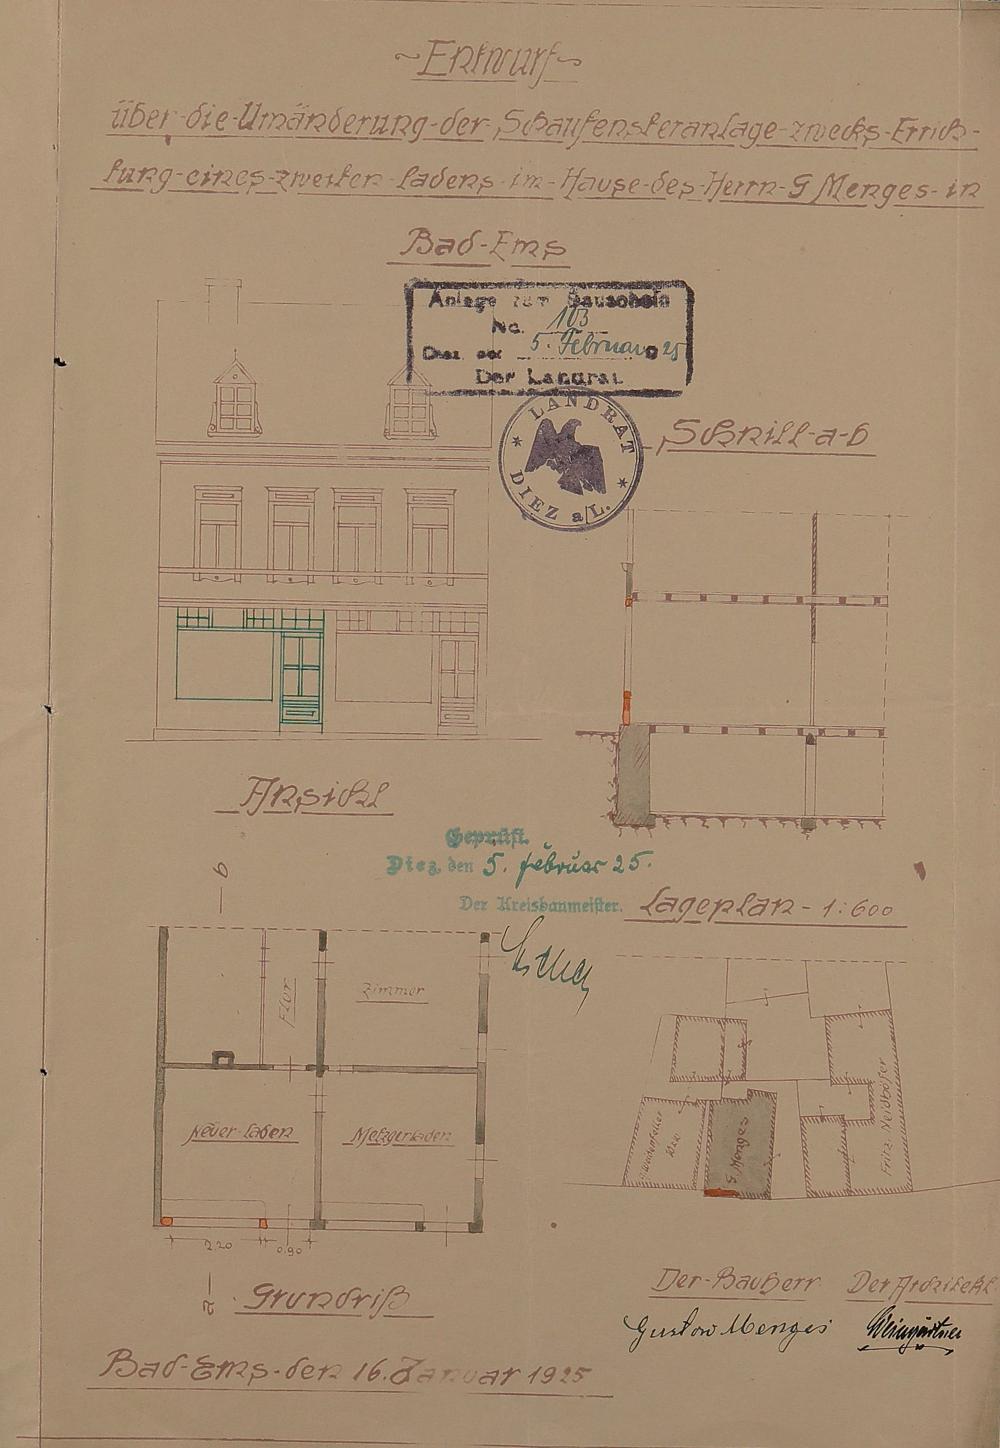 Entwurf
über-die-Umänderung-der-Schaufensteranlage-zwecks-Errich-
tung-eines-zweiten-Ladens-im-Hause-des-Herrn-G Menges-in
Bad-Ems
Anlage zum Bauschein
No. 103
Diez, den 5. Februar 25
Der Landrat.
LANDRAT
DIEZ a/L.
Schnitt-a-b
Ansicht
Geprüft.
Diez, den 5. Februar 25.
Der Kreisbaumeister.
Lageplan - 1:600
b
Flur
Zimmer
Neuer-Laden
Metzgerladen
G Menges
Fritz Neidhöfer
2.20
0.90
a
Grundriß
Der-Bauherr
Der Architekt
Gustav Menges
Weingärtner
Bad-Ems-den 16. Januar 1925